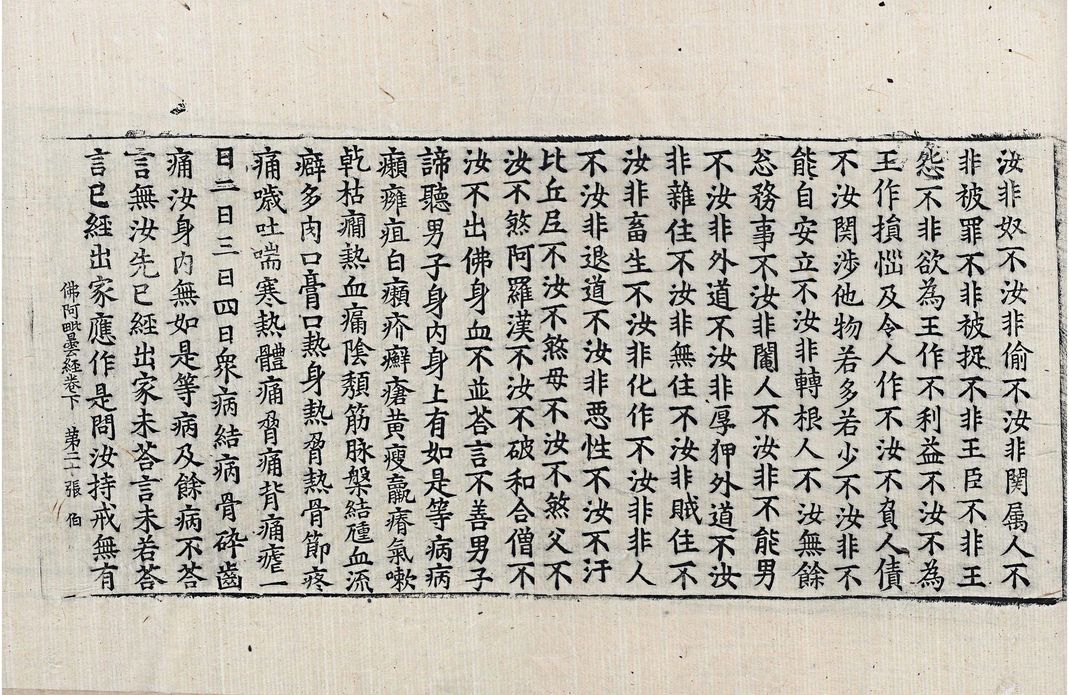 汝非奴不汝非偷不汝非関属人不
非被罪不非被捉不非王臣不非王
怨不非欲為王作不利益不汝不為
王作損惱及令人作不汝不負人債
不汝関涉他物若多若少不汝非不
能自安立不汝非轉根人不汝無餘
忩務事不汝非閹人不汝非不能男
不汝非外道不汝非厚狎外道不汝
非雜住不汝非無住不汝非賊住不
汝非畜生不汝非化作不汝非非人
不汝非退道不汝非惡性不汝不汙
比丘尼不汝不煞母不汝不煞父不
汝不煞阿羅漢不汝不破和合僧不
汝不出佛身血不並荅言不善男子
諦聽男子身內身上有如是等病病
癩癰疽白癩疥癬瘡黃瘦羸瘠氣嗽
乾枯癇熱血痛陰頽筋脉槃結𤺄血流
癖多肉口膏口熱身熱脅熱骨節疼
痛噦吐喘寒熱體痛脅痛背痛瘧一
日二日三日四日衆病結病骨碎齒
痛汝身內無如是等病及餘病不荅
言無汝先已經出家未荅言未若荅
言已經出家應作是問汝持戒無有
佛阿毗曇經卷下 第二十張 伯